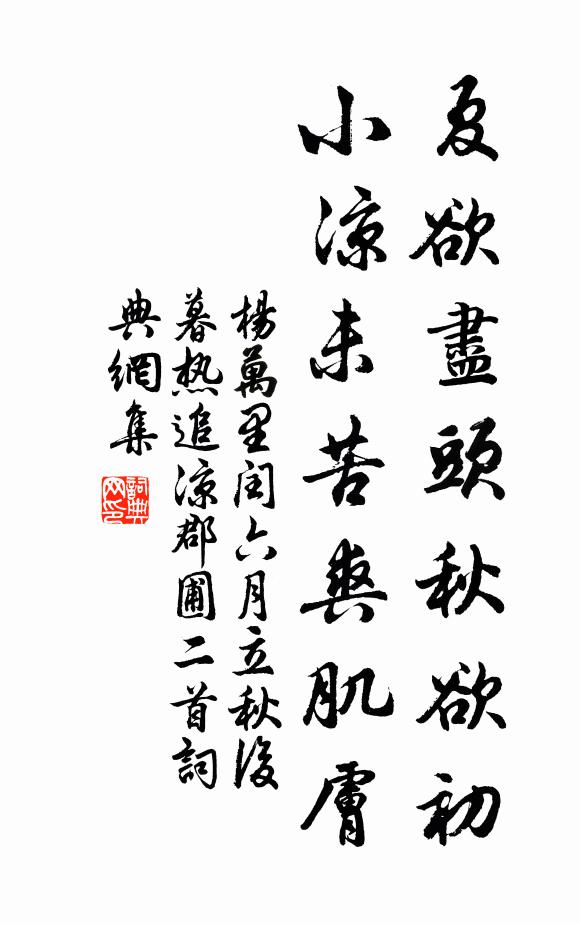 夏欲盡頭秋欲初
小涼未苦爽肌膚
楊萬里閏六月立秋後
暮热追涼郡圃二首詞
典網集
詞典網印